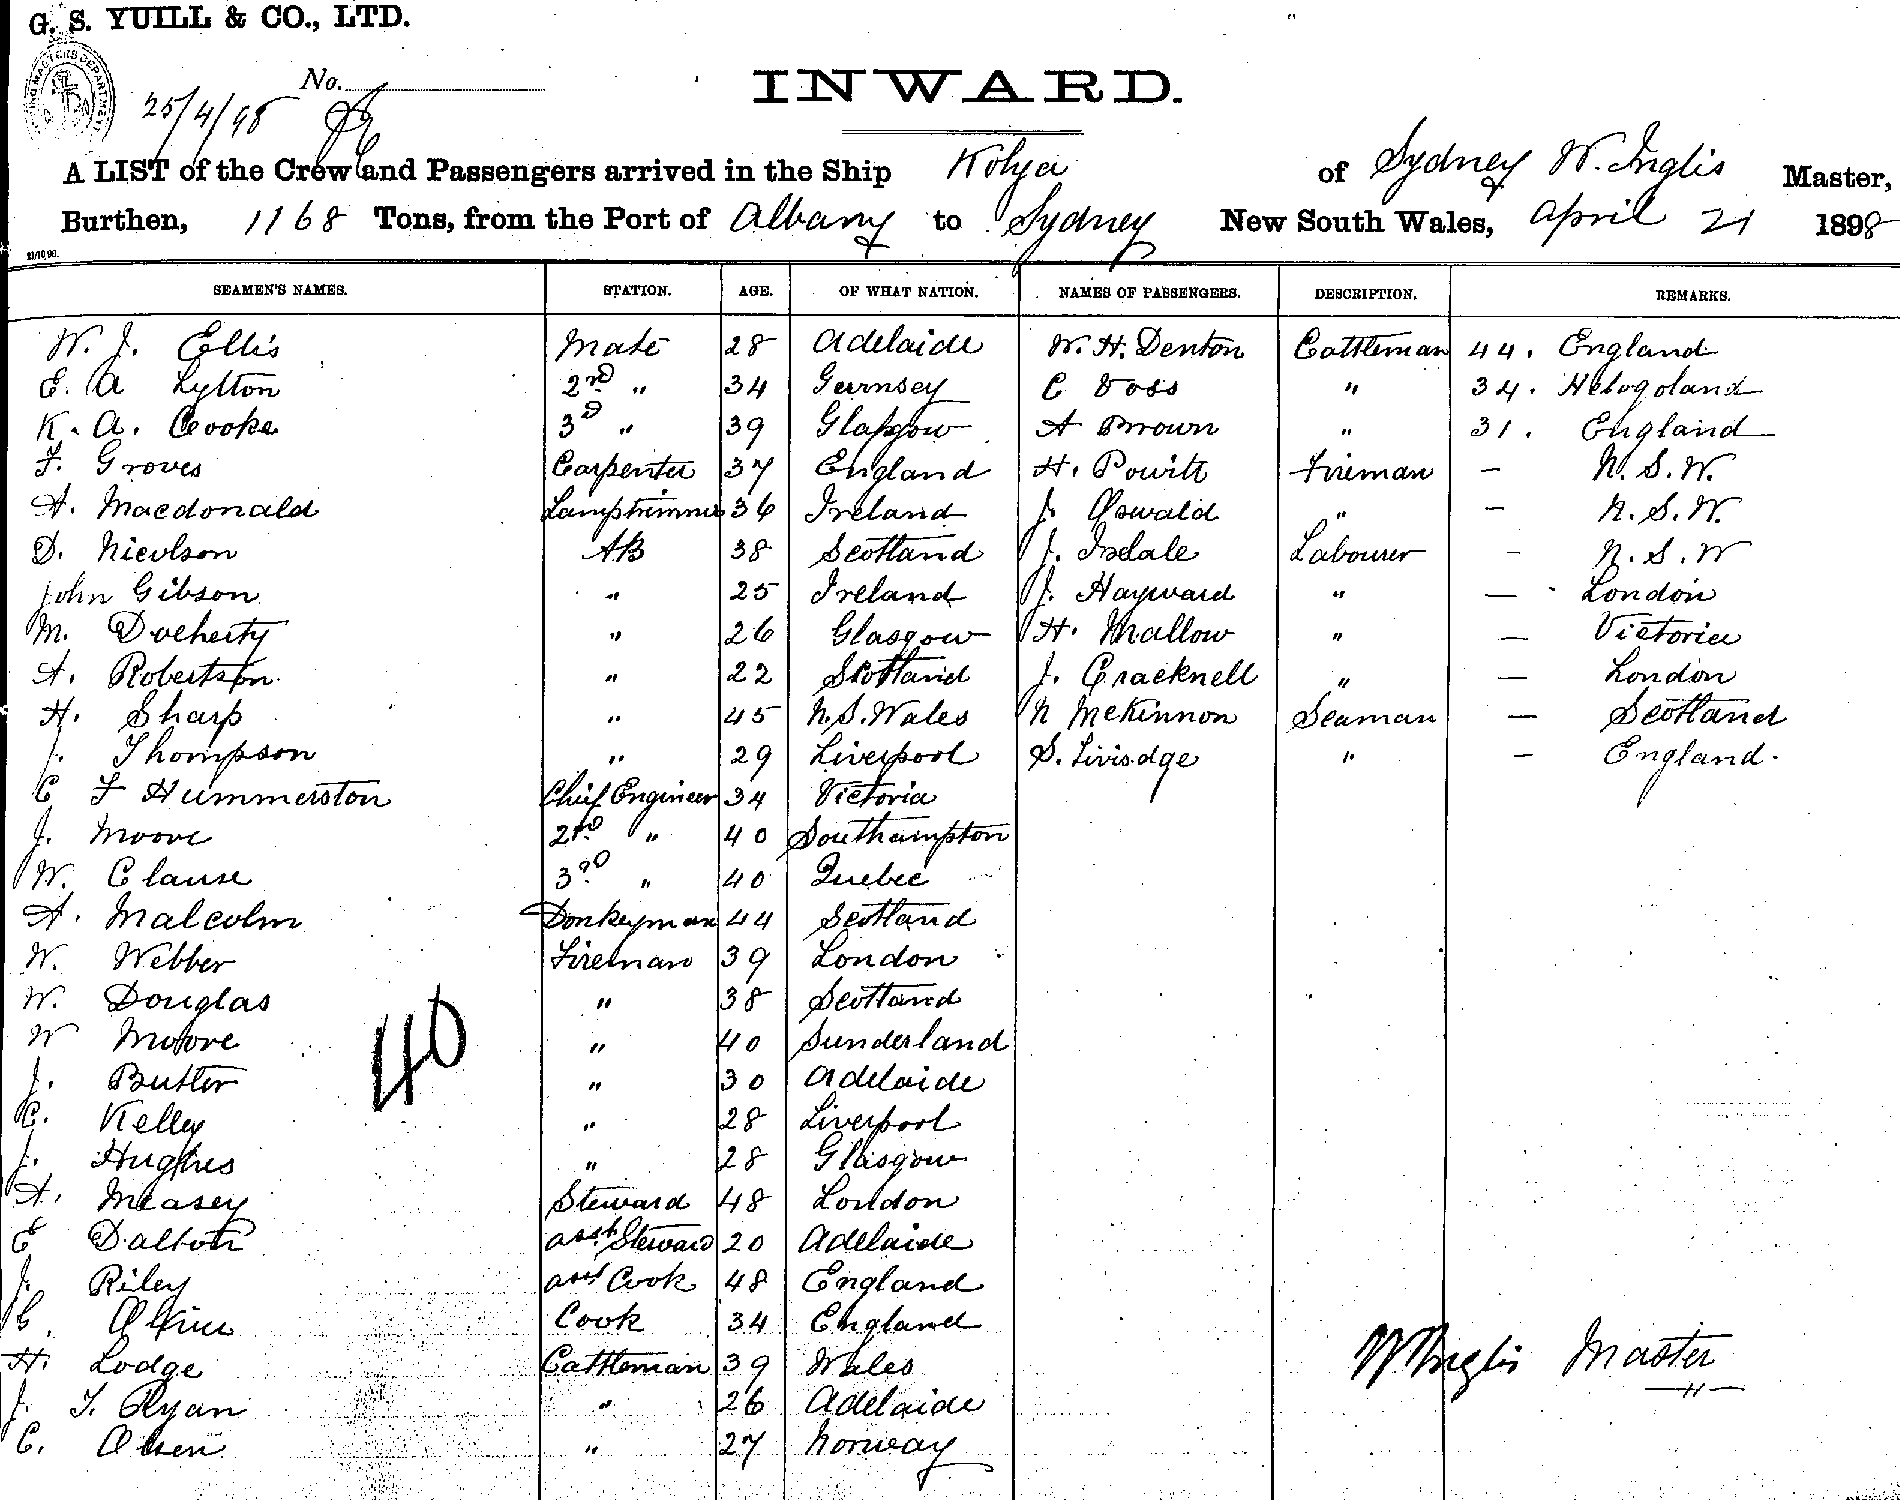 G. S. YUILL & CO., LTD.
No.
25/4/98
INWARD.
A LIST of the Crew and Passengers arrived in the Ship Kolya of Sydney W. Inglis Master,
Burthen, 1168 Tons, from the Port of Albany to Sydney New South Wales, April 21 1898
SEAMEN'S NAMES. STATION. AGE. OF WHAT NATION. NAMES OF PASSENGERS. DESCRIPTION. REMARKS.
W. J. Ellis Mate 28 Adelaide W. H. Denton Cattleman 44. England
E. A Lytton 2nd " 34 Guernsey C Voss " 34. Heligoland
K. A. Cooke 3d " 39 Glasgow A Brown " 31. England
F. Groves Carpenter 37 England H. Powitt Fireman - N. S. W.
A. Macdonald Lamptrimmer 36 Ireland J. Oswald " - N. S. W.
D. Nicolson AB 38 Scotland J. Isdale Labourer - N. S. W
John Gibson " 25 Ireland J. Hayward " - London
M. Docherty " 26 Glasgow H. Mallow " - Victoria
A. Robertson " 22 Scotland J. Cracknell " - London
H. Sharp " 45 N. S. Wales N McKinnon Seaman - Scotland
J. Thompson " 29 Liverpool S. Livisdge " - England.
C F Hummerston Chief Engineer 34 Victoria
J. Moore 2nd " 40 Southampton
W. Clause 3rd " 40 Quebec
A. Malcolm Donkeyman 44 Scotland
W. Webber Fireman 39 London
W. Douglas " 38 Scotland
W Moore " 40 Sunderland
J. Butler " 30 Adelaide
C. Kelley " 28 Liverpool
J. Hughes " 28 Glasgow
A. Measey Steward 48 London
E Dalton asst Steward 20 Adelaide
J. Riley asst Cook 48 England
C. Cook 34 England
H. Lodge Cattleman 39 Wales
J. T. Ryan " 26 Adelaide
C. Olsen " 27 Norway
40
W Inglis Master